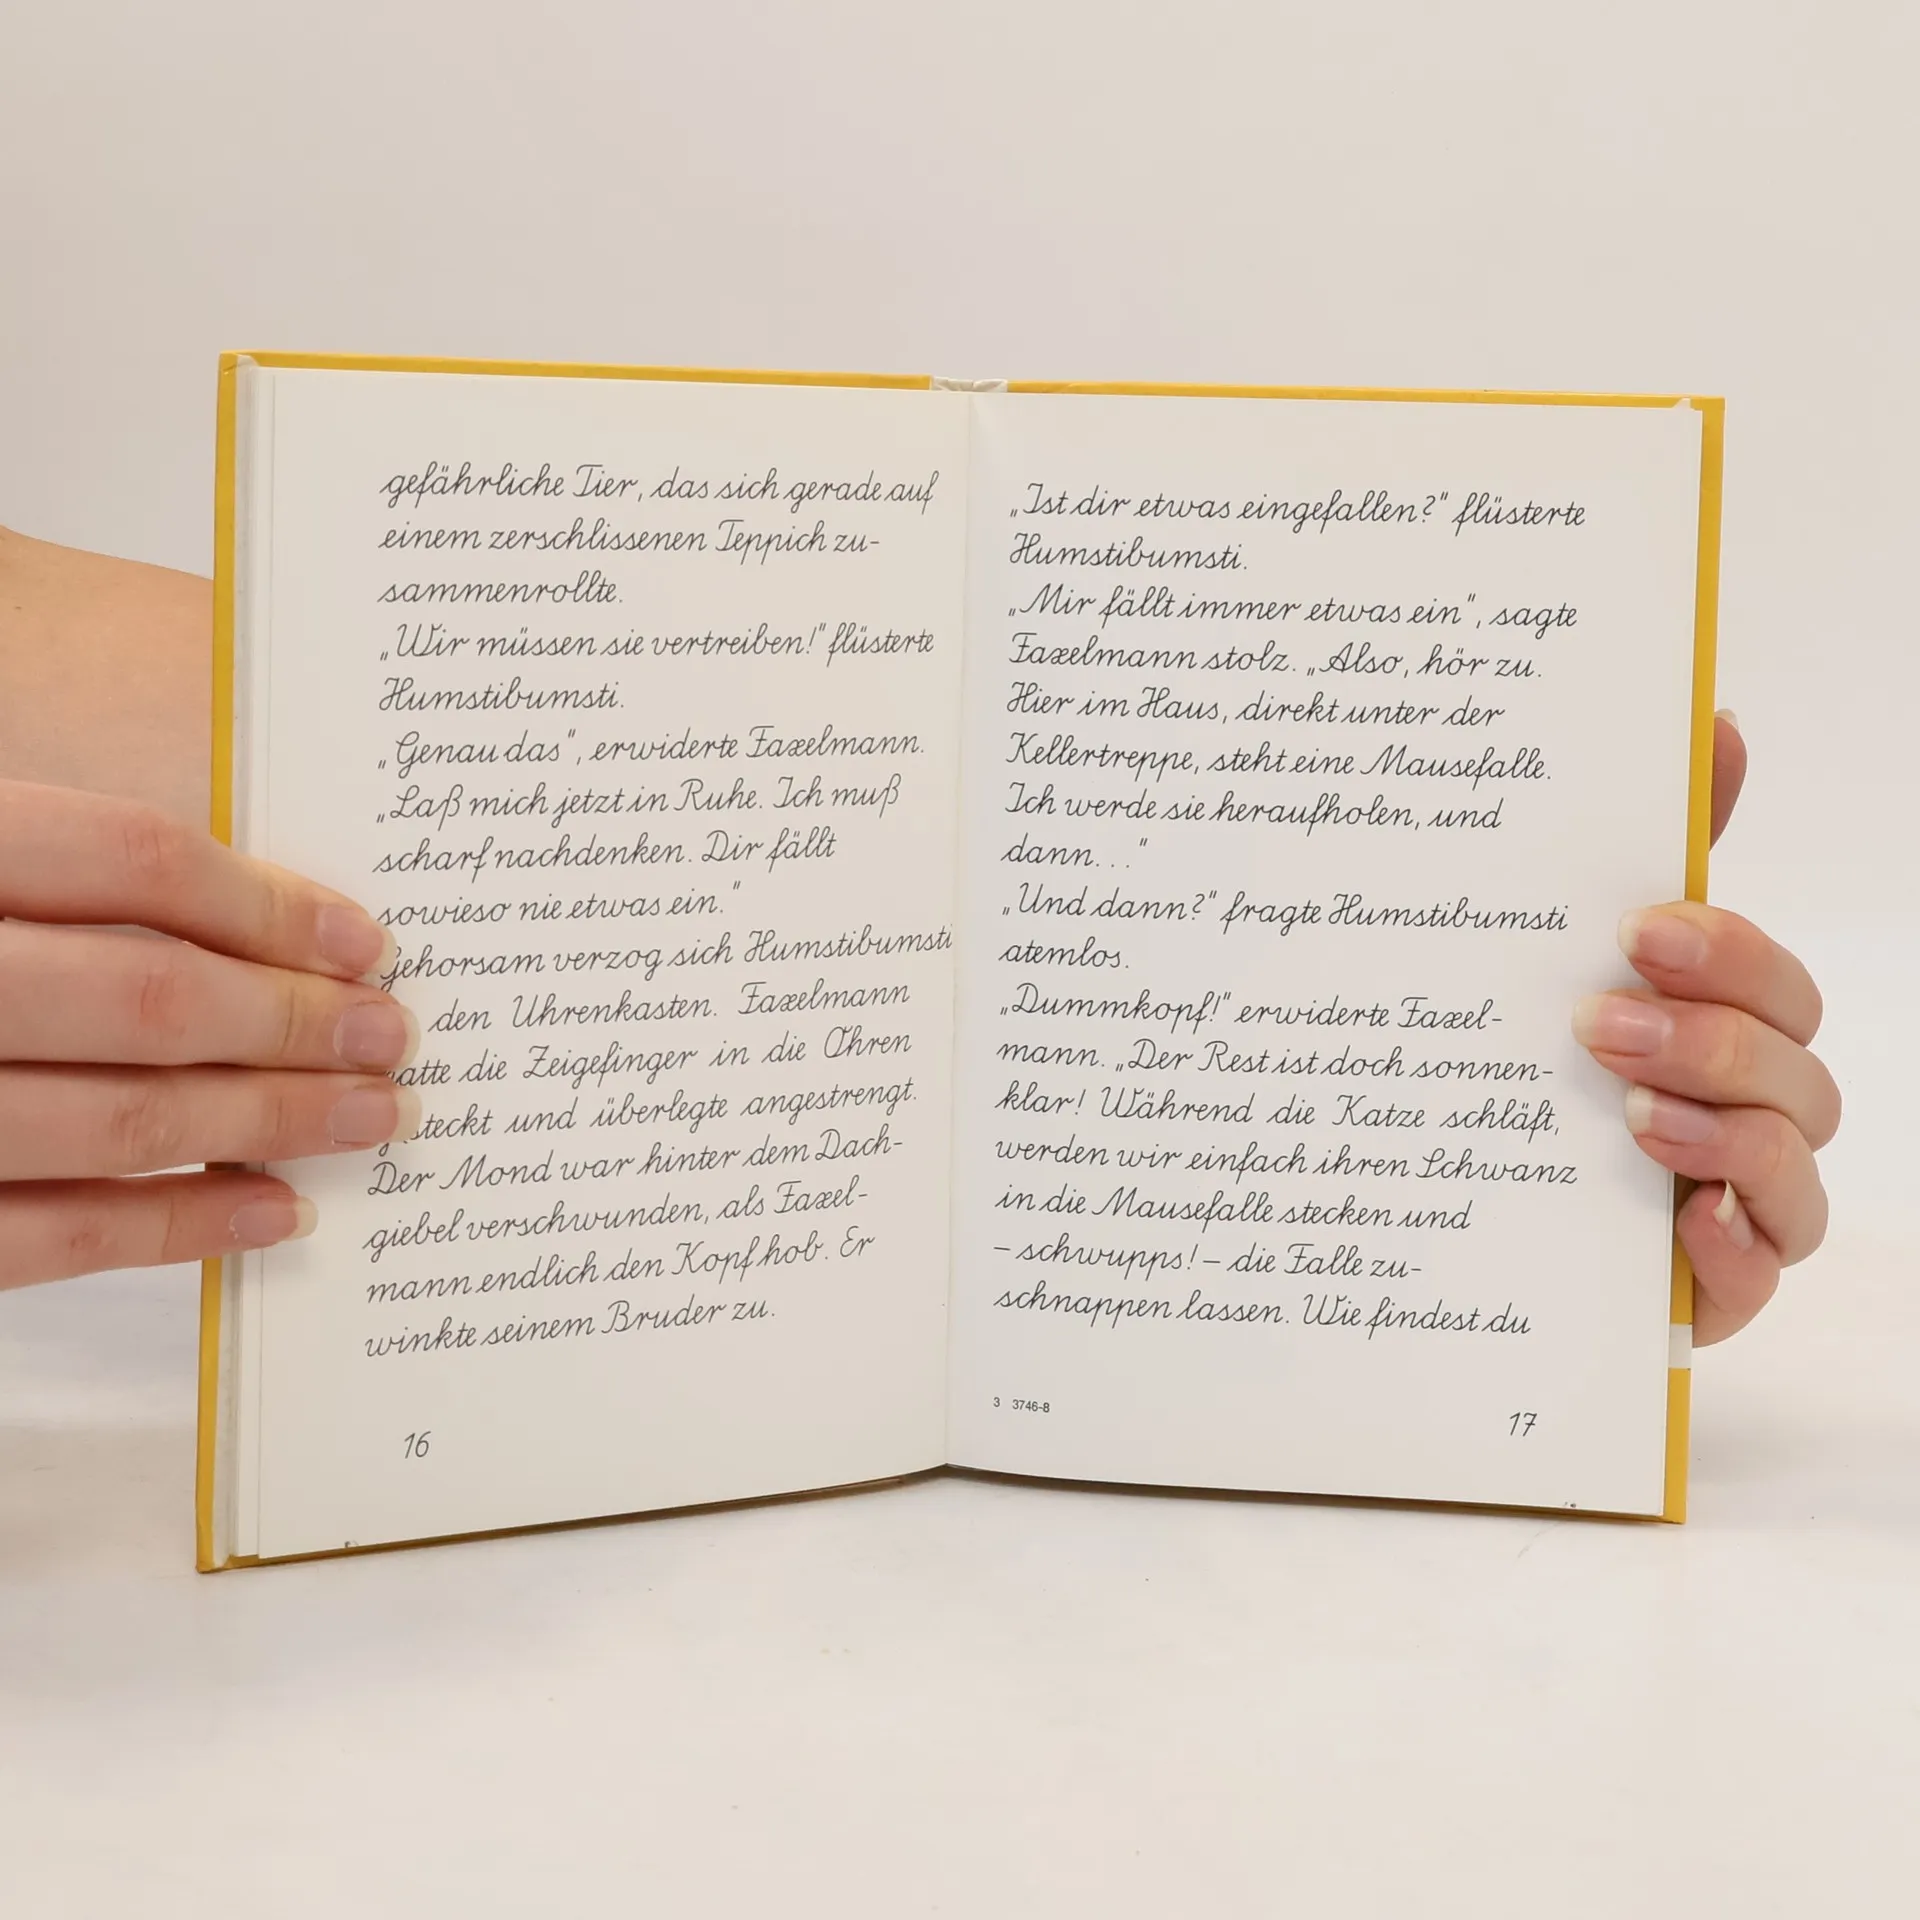 gefährliche Tier, das sich gerade auf
einem zerschlissenen Teppich zu-
sammenrollte.
„Wir müssen sie vertreiben!" flüsterte
Humstibumsti.
„Genau das", erwiderte Faxelmann.
„Laß mich jetzt in Ruhe. Ich muß
scharf nachdenken. Dir fällt
sowieso nie etwas ein."
Gehorsam verzog sich Humstibumsti
den Uhrenkasten. Faxelmann
hatte die Zeigefinger in die Ohren
gesteckt und überlegte angestrengt.
Der Mond war hinter dem Dach-
giebel verschwunden, als Faxel-
mann endlich den Kopf hob. Er
winkte seinem Bruder zu.
16
„Ist dir etwas eingefallen?" flüsterte
Humstibumsti.
„Mir fällt immer etwas ein", sagte
Faxelmann stolz. „Also, hör zu.
Hier im Haus, direkt unter der
Kellertreppe, steht eine Mausefalle.
Ich werde sie heraufholen, und
dann..."
„Und dann?" fragte Humstibumsti
atemlos.
„Dummkopf!" erwiderte Faxel-
mann. „Der Rest ist doch sonnen-
klar! Während die Katze schläft,
werden wir einfach ihren Schwanz
in die Mausefalle stecken und
– schwupps! – die Falle zu-
schnappen lassen. Wie findest du
3 3746-8
17